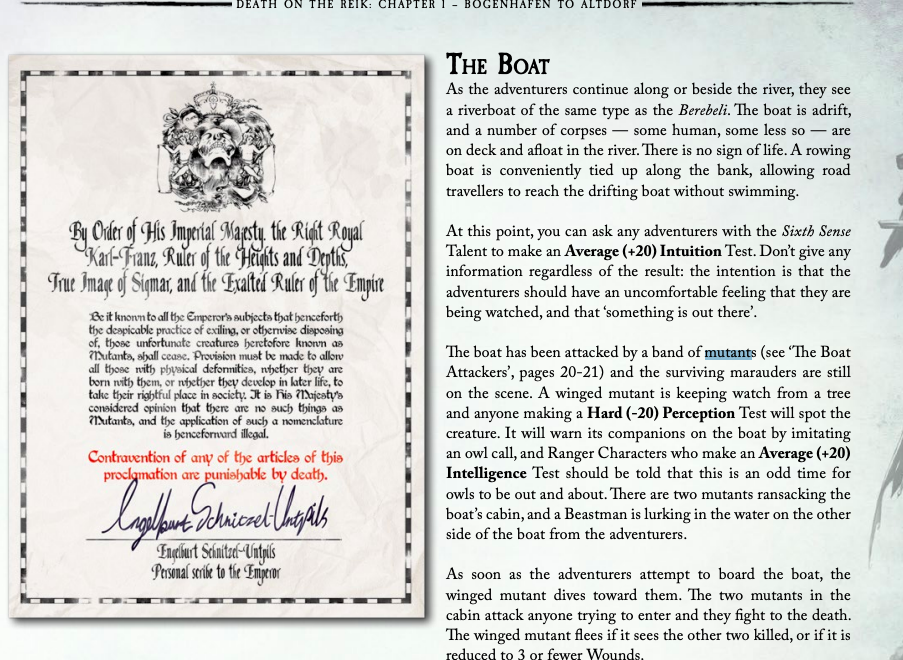 DEATH ON THE REIK: CHAPTER I – BOGENHAFEN TO ALTDORF
By Order of His Imperial Majesty, the Right Royal
Karl-Franz, Ruler of the Heights and Depths,
True Image of Sigmar, and the Exalted Ruler of the Empire
Be it known to all the Emperor's subjects that henceforth
the despicable practice of exiling, or otherwise disposing
of, those unfortunate creatures heretofore known as
Mutants, shall cease. Provision must be made to allow
all those with physical deformities, whether they are
born with them, or whether they develop in later life, to
take their rightful place in society. It is His Majesty's
considered opinion that there are no such things as
Mutants, and the application of such a nomenclature
is henceforward illegal.
Contravention of any of the articles of this
proclamation are punishable by death.
Engelburt Schnitzel-Untpils
Engelburt Schnitzel-Untpils
Personal scribe to the Emperor
The Boat
As the adventurers continue along or beside the river, they see
a riverboat of the same type as the Berebeli. The boat is adrift,
and a number of corpses — some human, some less so — are
on deck and afloat in the river. There is no sign of life. A rowing
boat is conveniently tied up along the bank, allowing road
travellers to reach the drifting boat without swimming.
At this point, you can ask any adventurers with the Sixth Sense
Talent to make an Average (+20) Intuition Test. Don't give any
information regardless of the result: the intention is that the
adventurers should have an uncomfortable feeling that they are
being watched, and that 'something is out there'.
The boat has been attacked by a band of mutants (see 'The Boat
Attackers', pages 20-21) and the surviving marauders are still
on the scene. A winged mutant is keeping watch from a tree
and anyone making a Hard (-20) Perception Test will spot the
creature. It will warn its companions on the boat by imitating
an owl call, and Ranger Characters who make an Average (+20)
Intelligence Test should be told that this is an odd time for
owls to be out and about. There are two mutants ransacking the
boat's cabin, and a Beastman is lurking in the water on the other
side of the boat from the adventurers.
As soon as the adventurers attempt to board the boat, the
winged mutant dives toward them. The two mutants in the
cabin attack anyone trying to enter and they fight to the death.
The winged mutant flees if it sees the other two killed, or if it is
reduced to 3 or fewer Wounds.